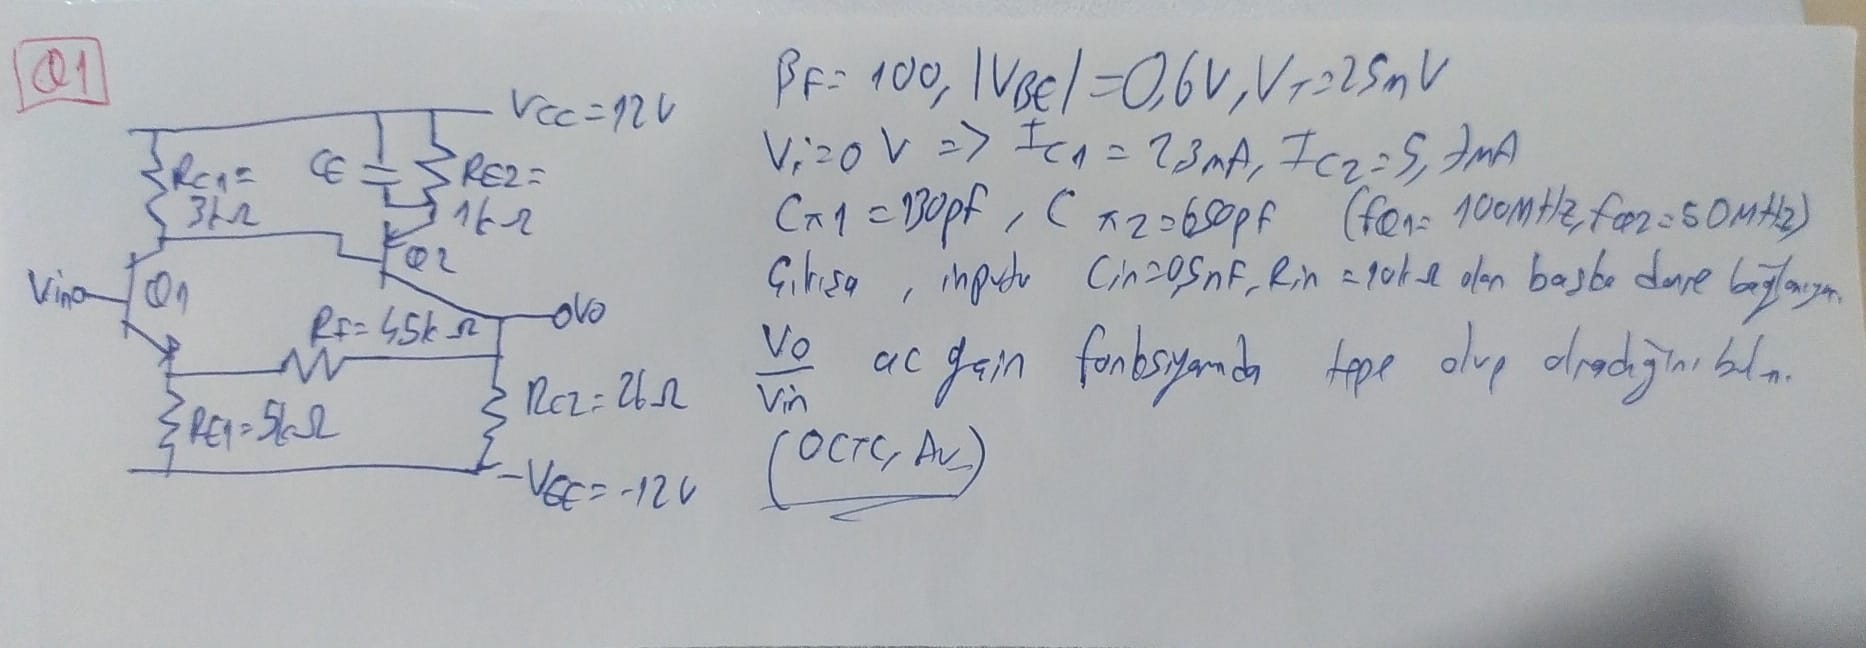 Q1
VCC=12V
RC1=
3kΩ
CE
RE2=
1kΩ
Q2
Vin
Q1
RF=45kΩ
Vo
RE1=5kΩ
RC2=26Ω
-VEE=-12V
βF=100, |VBE|=0,6V, VT=25mV
Vi=0V => IC1=2,3mA, IC2=5,7mA
Cπ1=130pf, Cπ2=680pf (fQ1=100MHz, fQ2=50MHz)
Çıkışa, inputu Cin=0,5nF, Rin=10kΩ olan başka devre bağlanıyor.
Vo/Vin ac gain fonksiyonunda tepe olup olmadığını bulun.
(OCTC, Av)